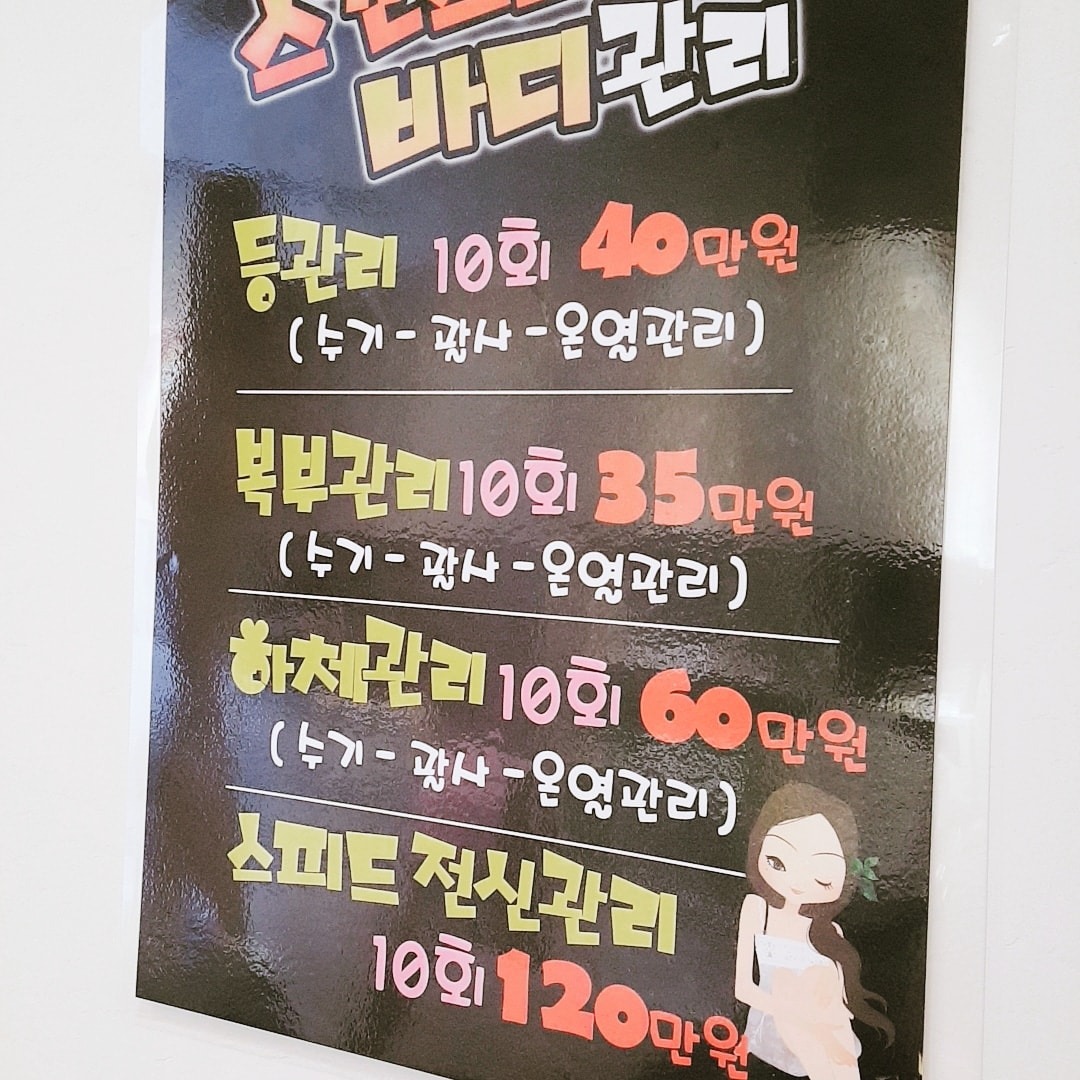 바디관리
등관리 10회 40만원
(수기 - 괄사 - 온열관리)
복부관리 10회 35만원
(수기 - 괄사 - 온열관리)
하체관리 10회 60만원
(수기 - 괄사 - 온열관리)
스피드 전신관리
10회 120만원